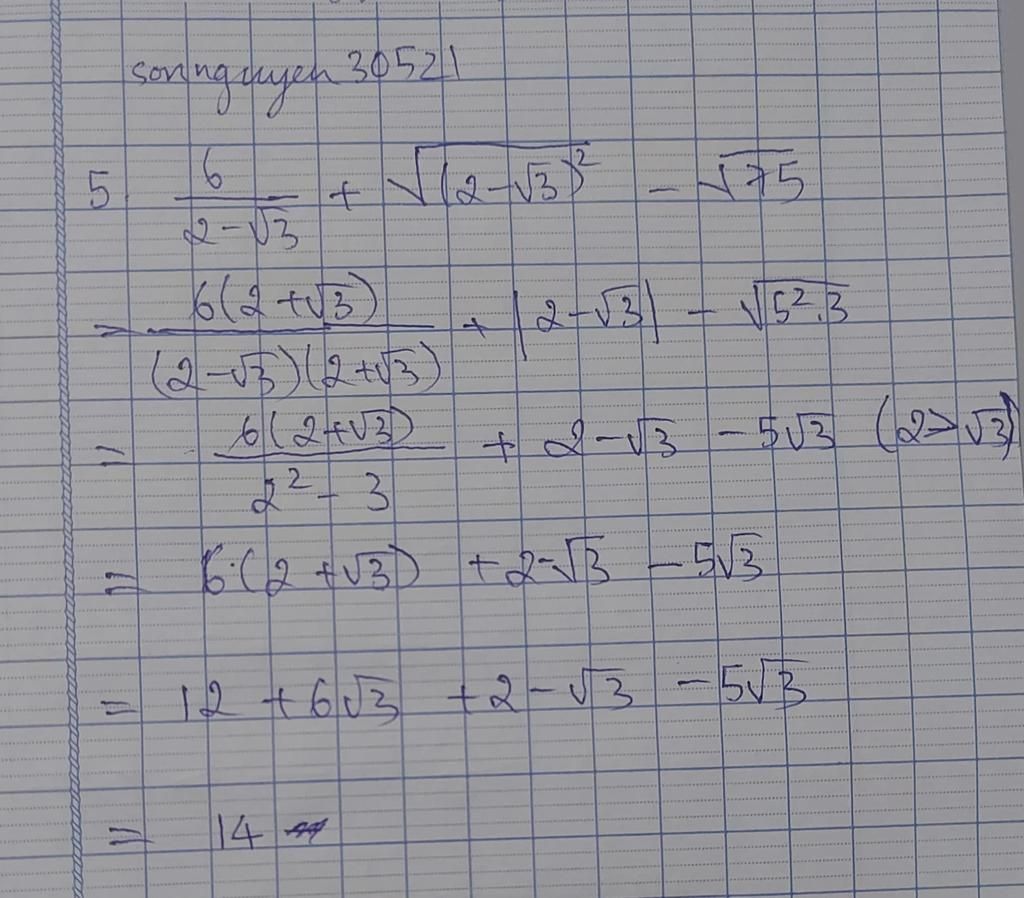 sonnguyen30521
5 6/(2-√3) + √((2-√3)²) - √75
= 6(2+√3)/((2-√3)(2+√3)) + |2-√3| - √(5².3)
= 6(2+√3)/(2²-3) + 2-√3 - 5√3 (2>√3)
= 6.(2+√3) +2-√3 - 5√3
= 12 + 6√3 +2 - √3 - 5√3
= 14